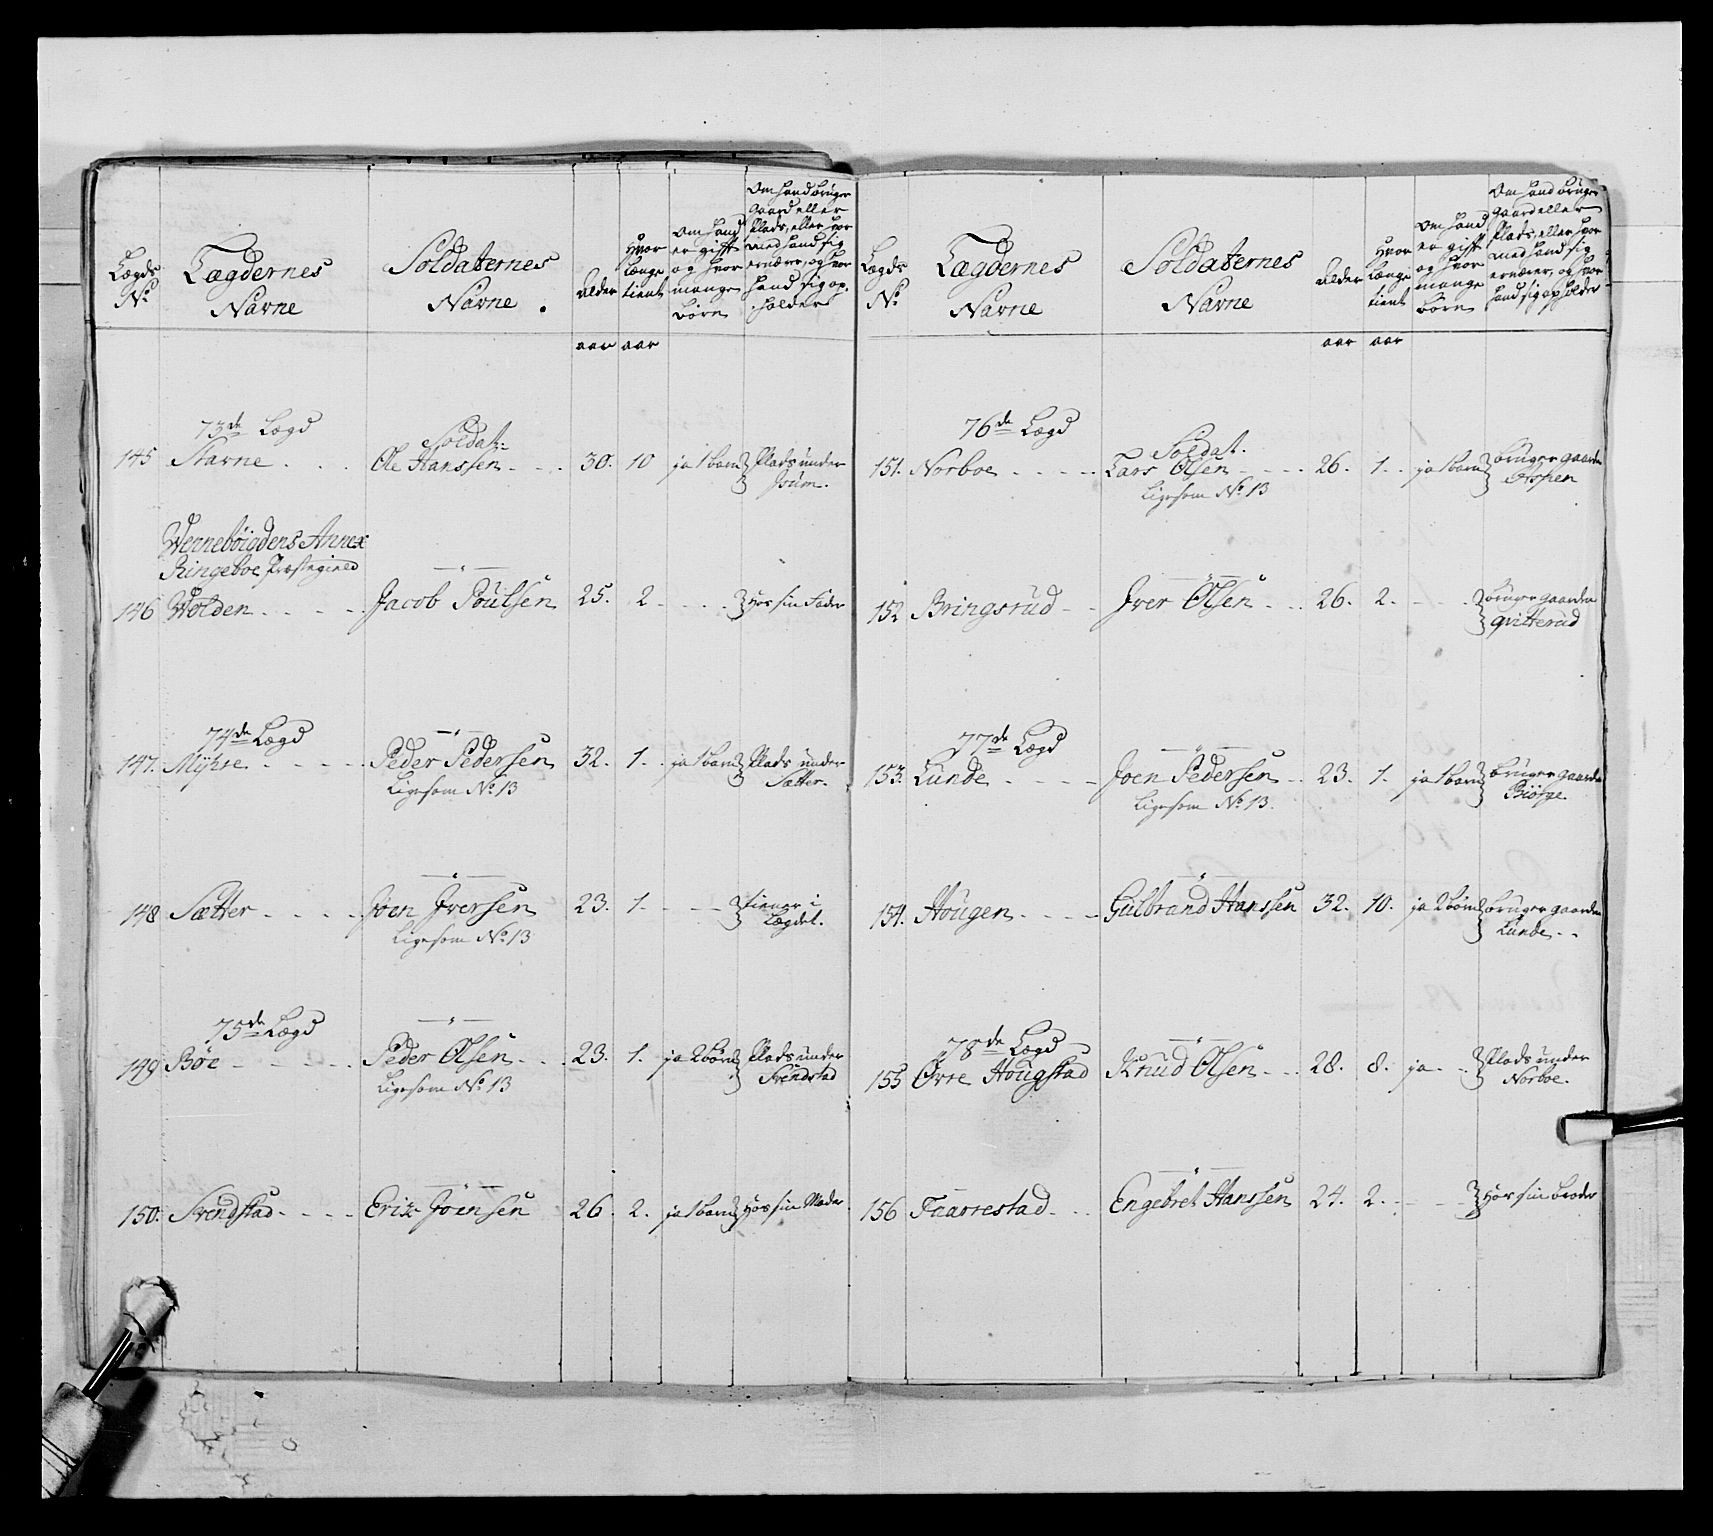 Lægds No
Lægdernes Navne
Soldaternes Navne.
alder
Hvor længe tient
Om hand er gift og hvor mange børn
Om hand bruger gaard eller Plads, eller hvor med hand sig ernærer, og hvor hand sig op holder
aar aar
73de Lægd Soldat:
145 Starne . . . Ole Hanssen . . . 30. 10 ja 1 barn Plads under
Isum.
Wennebøigdens Annex
Ringeboe Præstegield
146 Wolden . . . . Jacob Poulsen 25. 2 . . . . hos sin Fader
74de Lægd
147. Myhre . . . . Peder Pedersen 32. 1. . ja 1 barn Plads under
Ligesom No 13 Sætter.
148 Sætter . . . . Joen Iversen 23. 1. . . . tiener i
Ligesom No 13 Lægdet.
75de Lægd
149 Bøe . . . . . Peder Olsen . . 23. 1. ja 2 børn Plads under
Ligesom No 13 Svendstad
150. Svendstad . . . . Erik Joensen 26. 2. ja 1 barn hos sin Moder
Lægds No
Lægdernes Navne
Soldaternes Navne
alder
Hvor længe tient
Om hand er gift og hvor mange børn
Om hand bruger gaard eller Plads, eller hvor med hand sig ernærer, og hvor hand sig op holder
aar aar
76de Lægd Soldat.
151. Norboe . . . . . Lars Olsen . . . . 26. 1. . ja 1 barn bruger gaarden
Ligesom No 13 Aspen
152 Bringsrud . . Iver Olsen . . . 26. 2. . . . bruger gaarden
qvitterud
77de Lægd
153. Lunde . . . . Joen Pedersen . . 23. 1. ja 1 barn bruger gaarden
Ligesom No 13. Biørge
154. Hougen . . . . Gulbrand Hanssen 32. 10. ja 2 børn bruger gaarden
Lunde . .
78de Lægd
155 Øvre Hougstad Knud Olsen . . . 28. 8. ja . . Plads under
Norboe.
156 Taarrestad . . . Engebret Hanssen 24. 2. . . . hos sin broder